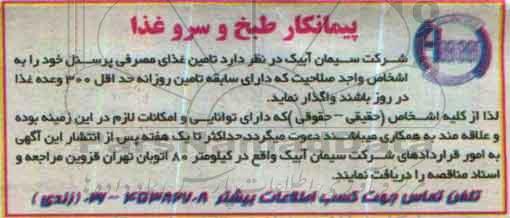 پیمانکار طبخ و سرو غذا
شرکت سیمان آبیک در نظر دارد تامین غذای مصرفی پرسنل خود را به
اشخاص واجد صلاحیت که دارای سابقه تامین روزانه حد اقل ۳۰۰ وعده غذا
در روز باشند واگذار نماید.
لذا از کلیه اشخاص (حقیقی - حقوقی) که دارای توانایی و امکانات لازم در این زمینه بوده
و علاقه مند به همکاری میباشند دعوت میگردد، حداکثر تا یک هفته پس از انتشار این آگهی
به امور قراردادهای شرکت سیمان آبیک واقع در کیلومتر ۸۰ اتوبان تهران قزوین مراجعه و
اسناد مناقصه را دریافت نمایند.
تلفن تماس جهت کسب اطلاعات بیشتر (زندی)